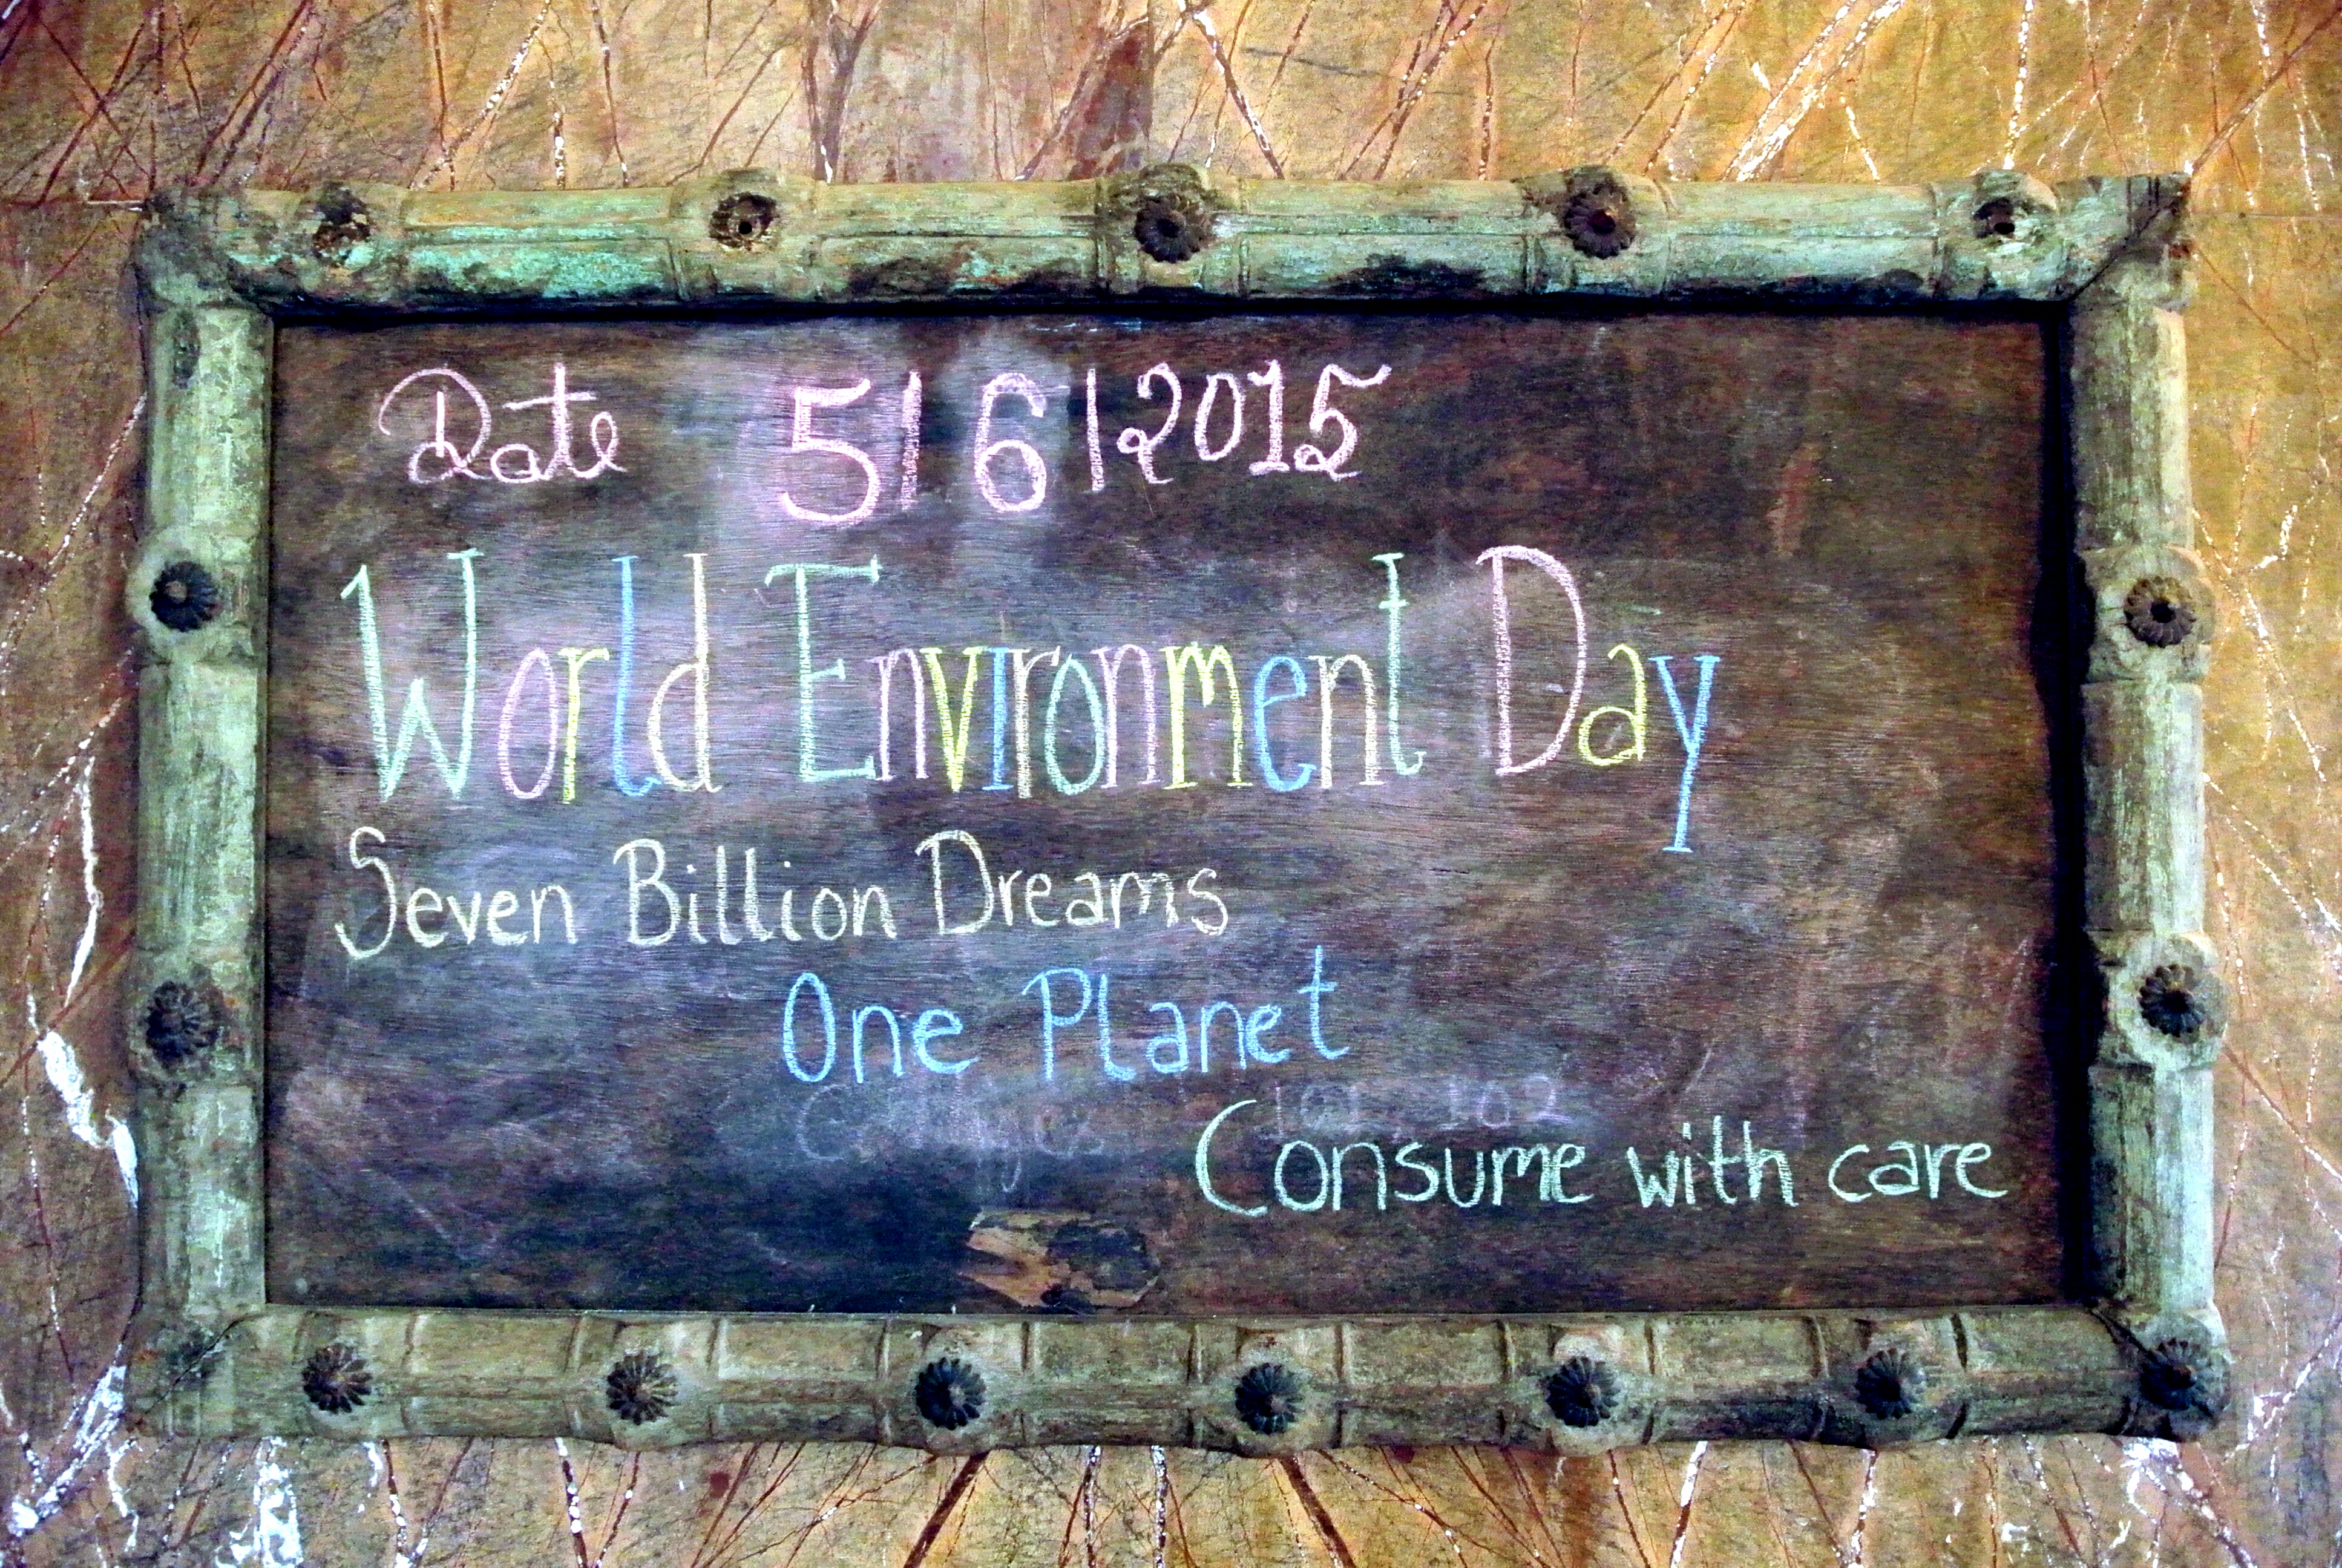 Date 5/6/2015
World Environment Day
Seven Billion Dreams
One Planet
Consume with care